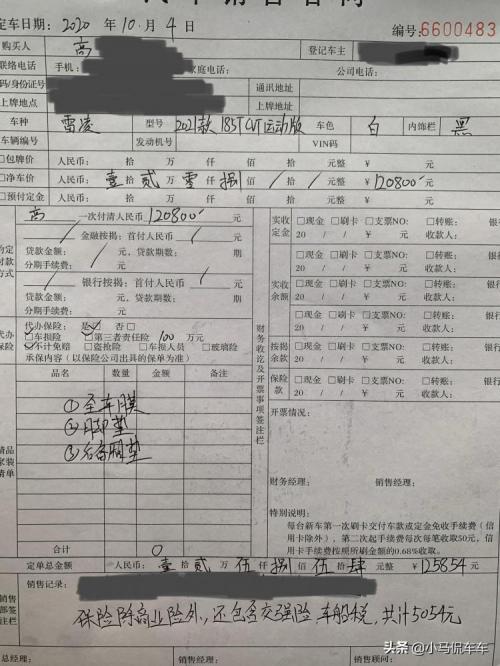 定车日期：2020 年 10 月 4 日 编号：6600483
购买人 高 登记车主
联络电话 手机： 家庭电话： 公司电话：
码/身份证号 通讯地址
上牌地点 上牌地址
车种 雷凌 型号 2021款 185T CVT 运动版 车色 白 内饰栏 黑
车辆编号 发动机号 VIN码
□包牌价 人民币： 拾 万 仟 佰 拾 元整 ￥ 元
□净车价 人民币：壹拾贰万零仟捌佰/拾/元整 ￥120800 元
□预付定金 人民币： 拾 万 仟 佰 拾 元整 ￥ 元
约定付款方式
高 一次付清人民币 120800 元
/ 金融按揭：首付人民币 / 元
贷款金额： 元，贷款期数：
分期手续费： 元
/ 银行按揭：首付人民币 / 元
贷款金额： 元，贷款期数：
分期手续费： 元
代办保险
代办保险：是☑ 否□
☑车损险 ☑第三者责任险 100 万元
☑不计免赔 □盗抢险 □车损人员 □玻璃险
承保内容（以保险公司出具的保单为准）
品名 数量 金额 备注
①全车膜
②脚垫
③后备厢垫
精品装潢清单
合计 0
财务收讫及开票事项签注栏
实收定金 □现金 □刷卡 □支票NO: □转账： 银行
20 / / ￥ 元 收款人：
□现金 □刷卡 □支票NO: □转账： 银行
20 / / ￥ 元 收款人：
实收余额 □现金 □刷卡 □支票NO: □转账： 银行
20 / / ￥ 元 收款人：
□现金 □刷卡 □支票NO: □转账： 银行
20 / / ￥ 元 收款人：
按揭余款 □现金 □刷卡 □支票NO: □转账： 银行
20 / / ￥ 元 收款人：
保险款 □现金 □刷卡 □支票NO: □转账： 银行
20 / / ￥ 元 收款人：
开票情况：
财务经理： 销售经理：
特别说明：
每台新车第一次刷卡交付车款或定金免收手续费（信
用卡除外），第二次起手续费每次每笔收取50元，信
用卡手续费按照所刷金额的0.68%收取。
定单总金额 人民币：壹拾贰万伍仟捌佰伍拾肆元整 ￥125854 元
销售记录：
保险除商业险外，还包含交强险、车船税，共计5054元
销售部签注栏
销售经理： 销售顾问：
头条 @小马侃车车